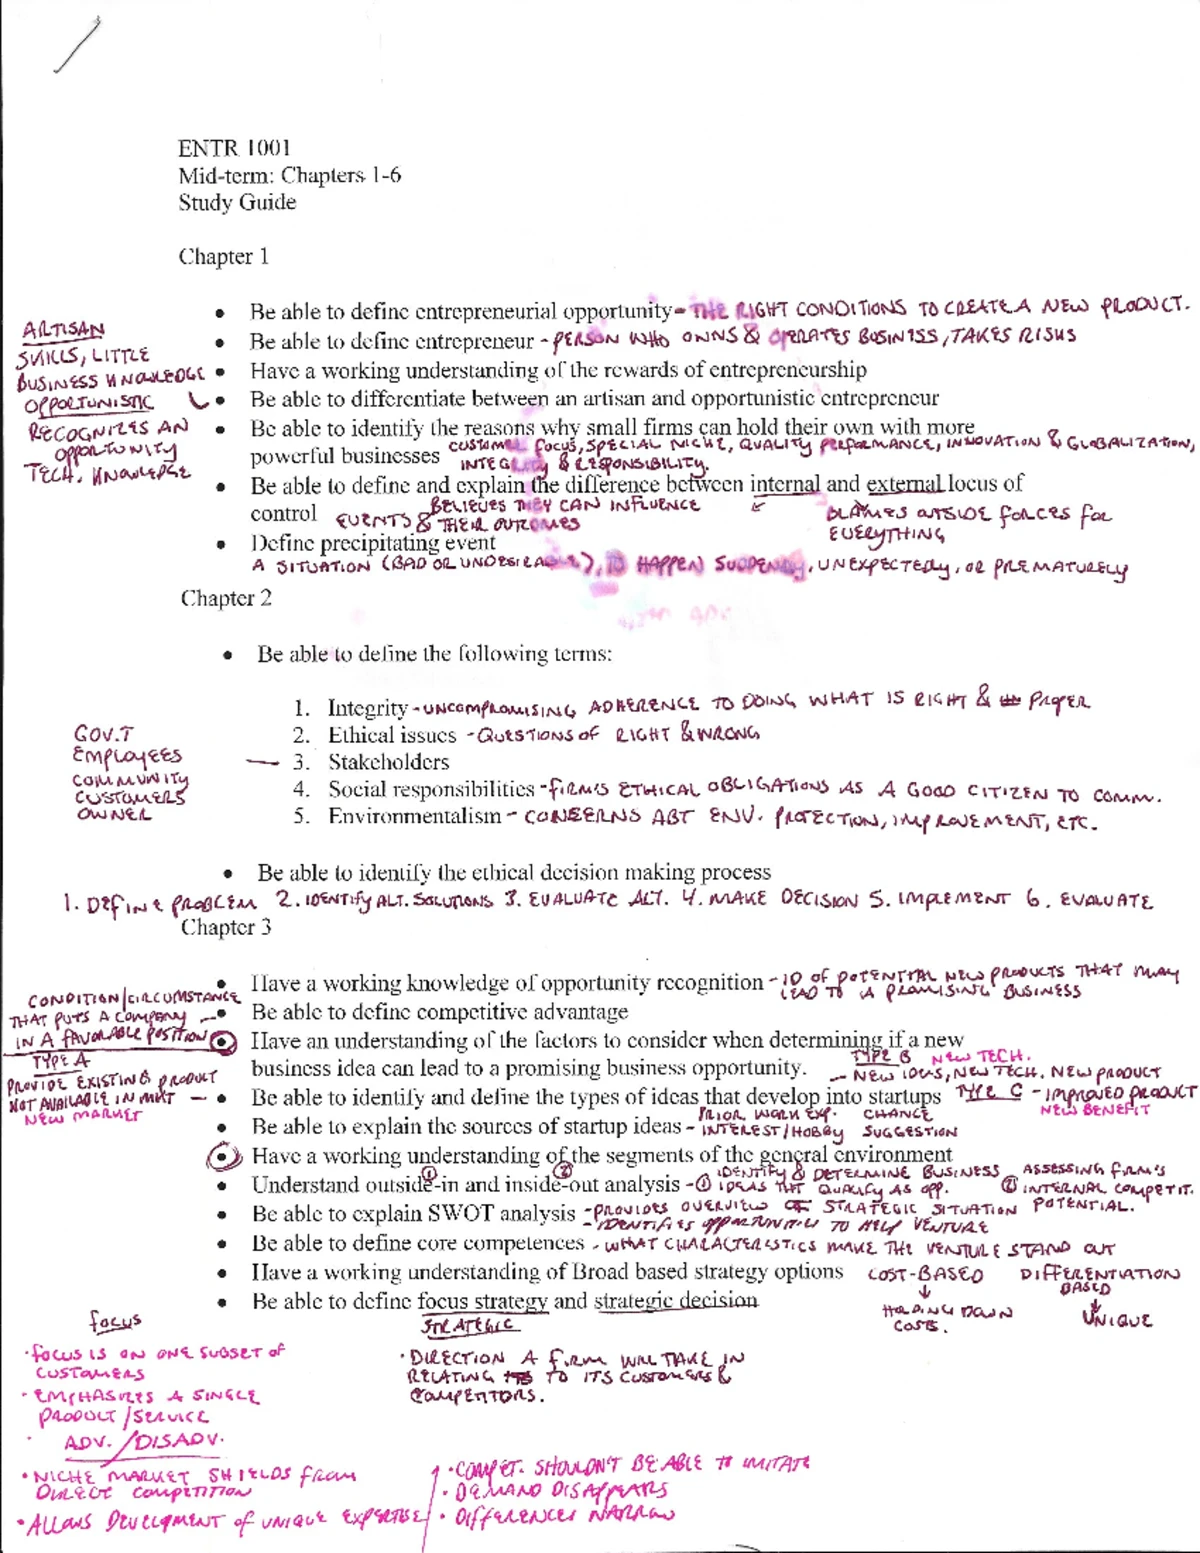 ENTR 1001
Mid-term: Chapters 1-6
Study Guide
Chapter 1
• Be able to define entrepreneurial opportunity - THE RIGHT CONDITIONS TO CREATE A NEW PRODUCT.
• Be able to define entrepreneur - PERSON WHO OWNS & OPERATES BUSINESS, TAKES RISKS
• Have a working understanding of the rewards of entrepreneurship
• Be able to differentiate between an artisan and opportunistic entrepreneur
ARTISAN
SKILLS, LITTLE
BUSINESS KNOWLEDGE
OPPORTUNISTIC
RECOGNIZES AN
OPPORTUNITY
TECH. KNOWLEDGE
• Be able to identify the reasons why small firms can hold their own with more
powerful businesses CUSTOMER FOCUS, SPECIAL NICHE, QUALITY PERFORMANCE, INNOVATION & GLOBALIZATION,
INTEGRITY & RESPONSIBILITY.
• Be able to define and explain the difference between internal and external locus of
control BELIEVES THEY CAN INFLUENCE
EVENTS & THEIR OUTCOMES
BLAMES OUTSIDE FORCES FOR
EVERYTHING
• Define precipitating event
A SITUATION (BAD OR UNDESIRABLE), TO HAPPEN SUDDENLY, UNEXPECTEDLY, OR PREMATURELY
Chapter 2
• Be able to define the following terms:
1. Integrity - UNCOMPROMISING ADHERENCE TO DOING WHAT IS RIGHT & PROPER
2. Ethical issues - QUESTIONS OF RIGHT & WRONG
3. Stakeholders
GOV.T
EMPLOYEES
COMMUNITY
CUSTOMERS
OWNER
4. Social responsibilities - FIRM'S ETHICAL OBLIGATIONS AS A GOOD CITIZEN TO COMM.
5. Environmentalism - CONCERNS ABT ENV. PROTECTION, IMPROVEMENT, ETC.
• Be able to identify the ethical decision making process
1. DEFINE PROBLEM 2. IDENTIFY ALT. SOLUTIONS 3. EVALUATE ALT. 4. MAKE DECISION 5. IMPLEMENT 6. EVALUATE
Chapter 3
• Have a working knowledge of opportunity recognition - ID OF POTENTIAL NEW PRODUCTS THAT MAY
LEAD TO A PROMISING BUSINESS
• Be able to define competitive advantage
CONDITION/CIRCUMSTANCE
THAT PUTS A COMPANY
IN A FAVORABLE POSITION
• Have an understanding of the factors to consider when determining if a new
business idea can lead to a promising business opportunity.
• Be able to identify and define the types of ideas that develop into startups
TYPE A
PROVIDE EXISTING PRODUCT
NOT AVAILABLE IN MKT
NEW MARKET
TYPE B NEW TECH.
- NEW IDEAS, NEW TECH. NEW PRODUCT
TYPE C - IMPROVED PRODUCT
NEW BENEFIT
• Be able to explain the sources of startup ideas - PRIOR WORK EXP. CHANCE
INTEREST/HOBBY SUGGESTION
• Have a working understanding of the segments of the general environment
• Understand outside-in and inside-out analysis - ① IDENTIFY & DETERMINE BUSINESS
IDEAS THAT QUALIFY AS OPP.
② ASSESSING FIRM'S
INTERNAL COMPETIT.
POTENTIAL.
• Be able to explain SWOT analysis - PROVIDES OVERVIEW OF STRATEGIC SITUATION
- IDENTIFIES OPPORTUNITIES TO HELP VENTURE
• Be able to define core competences - WHAT CHARACTERISTICS MAKE THE VENTURE STAND OUT
• Have a working understanding of Broad based strategy options COST-BASED DIFFERENTIATION
BASED
↓ ↓
HOLDING DOWN
COSTS.
UNIQUE
• Be able to define focus strategy and strategic decision
FOCUS
• FOCUS IS ON ONE SUBSET OF
CUSTOMERS
• EMPHASIZES A SINGLE
PRODUCT/SERVICE
• ADV./DISADV.
• NICHE MARKET SHIELDS FROM
DIRECT COMPETITION
• ALLOWS DEVELOPMENT OF UNIQUE EXPERTISE
STRATEGIC
• DIRECTION A FIRM WILL TAKE IN
RELATING TO ITS CUSTOMERS &
COMPETITORS.
• COMPET. SHOULDN'T BE ABLE TO IMITATE
• DEMAND DISAPPEARS
• DIFFERENCES NARROW